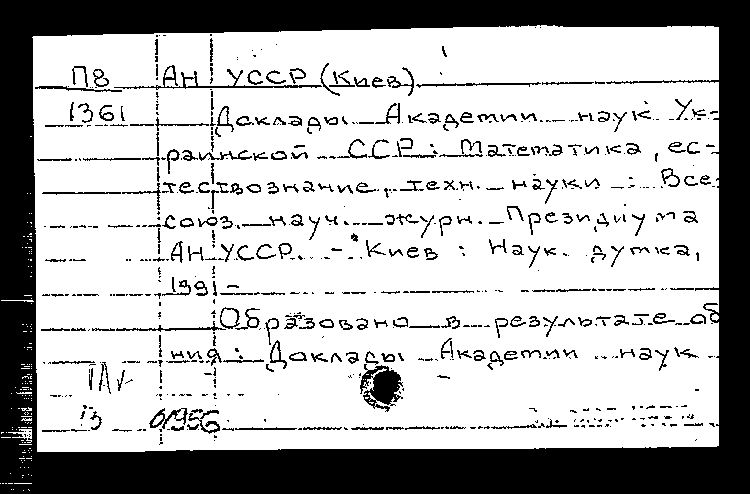 П8 АН УССР (Киев)
1361 Доклады Академии наук Ук-
раинской ССР : Математика, ес-
тествознание, техн. науки : Все
союз. науч. журн. Президиума
АН УССР. - Киев : Наук. думка,
1991 -
Образовано в результате об
ния : Доклады Академии наук